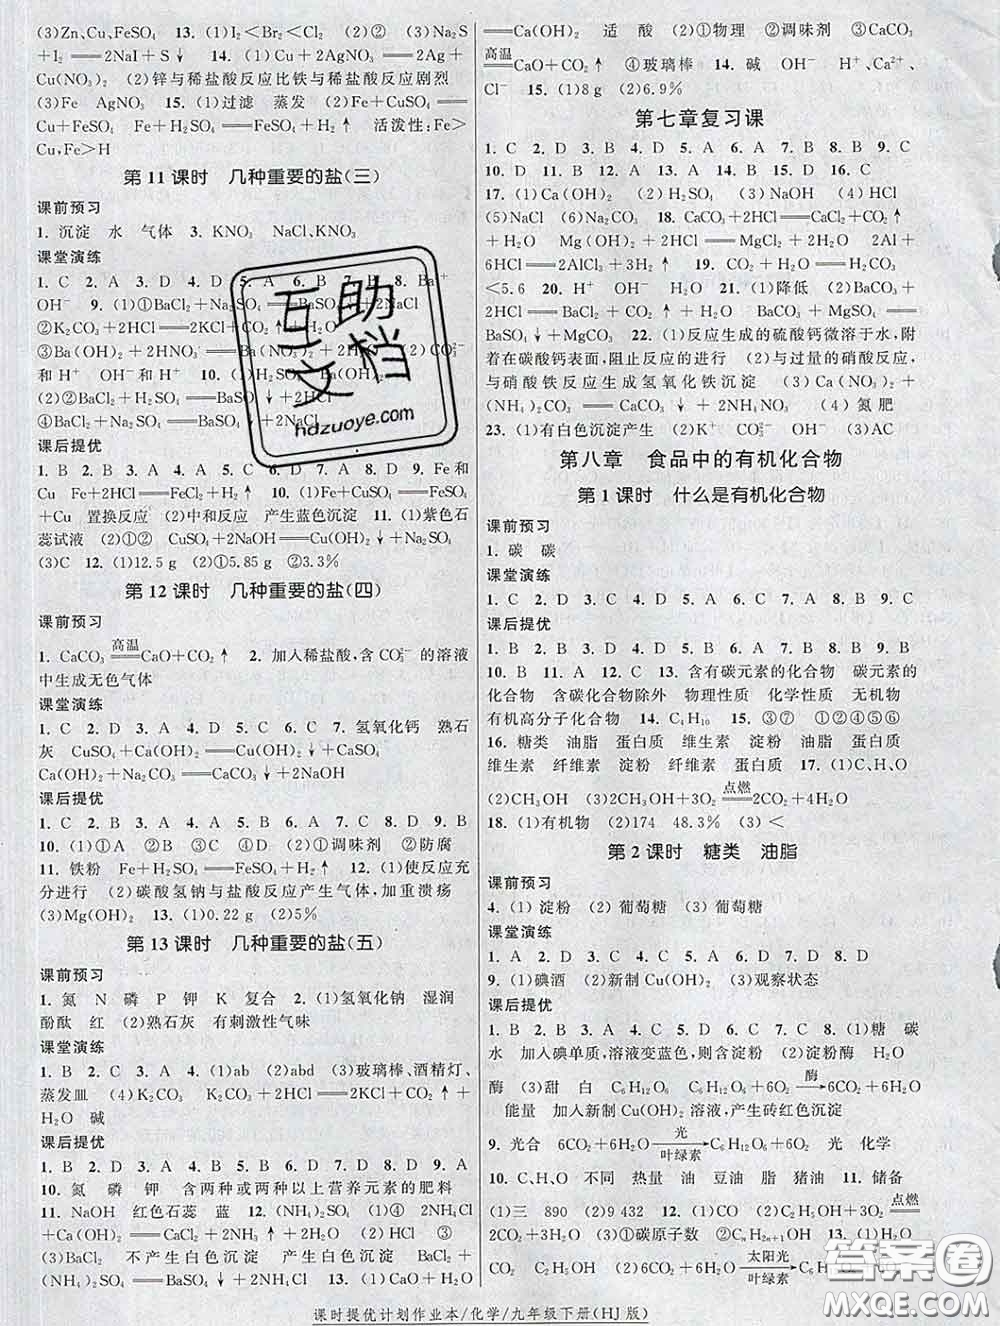 (3)Zn、Cu、FeSO₄ 13. (1)I₂<Br₂<Cl₂ (2)② (3)Na₂S
+I₂══2NaI+S↓ 14. (1)Cu+2AgNO₃══2Ag+
Cu(NO₃)₂ (2)锌与稀盐酸反应比铁与稀盐酸反应剧烈
(3)Fe AgNO₃ 15. (1)过滤 蒸发 (2)Fe+CuSO₄══
Cu+FeSO₄ Fe+H₂SO₄══FeSO₄+H₂↑ 活泼性:Fe>
Cu,Fe>H
第 11 课时 几种重要的盐(三)
课前预习
1. 沉淀 水 气体 3. KNO₃ NaCl、KNO₃
课堂演练
1. C 2. A 3. D 4. D 5. A 6. B 7. B 8. Ba²⁺
OH⁻ 9. (1)①BaCl₂+Na₂SO₄══BaSO₄↓+2NaCl
②K₂CO₃+2HCl══2KCl+CO₂↑+H₂O
③Ba(OH)₂+2HNO₃══Ba(NO₃)₂+2H₂O (2)CO₃²⁻
和 H⁺ OH⁻ 和 H⁺ 10. (1)
(2)②BaCl₂+H₂SO₄══BaSO₄↓
④BaCl₂+Na₂SO₄══BaSO₄↓
课后提优
1. B 2. B 3. D 4. D 5. C 6. B 7. D 8. D 9. Fe 和
Cu Fe+2HCl══FeCl₂+H₂↑ 10. (1)Fe+CuSO₄══FeSO₄
+Cu 置换反应 (2)中和反应 产生蓝色沉淀 11. (1)紫色石
蕊试液 (2)①② CuSO₄+2NaOH══Cu(OH)₂↓+Na₂SO₄
(3)C 12. (1)12.5 g (2)①5.85 g ②3.3%
第 12 课时 几种重要的盐(四)
课前预习
1. CaCO₃ 高温══ CaO+CO₂↑ 2. 加入稀盐酸,含 CO₃²⁻ 的溶液
中生成无色气体
课堂演练
1. C 2. D 3. A 4. D 5. C 6. C 7. 氢氧化钙 熟石
灰 CuSO₄+Ca(OH)₂══Cu(OH)₂↓+CaSO₄
Ca(OH)₂+Na₂CO₃══CaCO₃↓+2NaOH
课后提优
1. C 2. B 3. A 4. A 5. B 6. A 7. C 8. D 9. B
10. (1)①A ②B ③C ④D (2)①调味剂 ②防腐
11. 铁粉 Fe+H₂SO₄══FeSO₄+H₂↑ 12. (1)使反应充
分进行 (2)碳酸氢钠与盐酸反应产生气体,加重溃疡
(3)Mg(OH)₂ 13. (1)0.22 g (2)5%
第 13 课时 几种重要的盐(五)
课前预习
1. 氮 N 磷 P 钾 K 复合 2. (1)氢氧化钠 湿润
酚酞 红 (2)熟石灰 有刺激性气味
课堂演练
1. B 2. C 3. A 4. (1)ab (2)abd (3)玻璃棒、酒精灯、
蒸发皿 (4)K₂CO₃ K₂CO₃+2HCl══2KCl+CO₂↑+
H₂O 碱
课后提优
1. B 2. D 3. A 4. B 5. B 6. B 7. D 8. D 9. A
10. 氮 磷 钾 含两种或两种以上营养元素的肥料
11. NaOH 红色石蕊 蓝 12. (NH₄)₂SO₄ (1)④ 2NH₄Cl
+Ca(OH)₂══CaCl₂+2NH₃↑+2H₂O (2)HCl ③
(3)BaCl₂ 不产生白色沉淀 产生白色沉淀 BaCl₂+
(NH₄)₂SO₄══BaSO₄↓+2NH₄Cl 13. (1)CaO+H₂O
══Ca(OH)₂ 适 酸 (2)①物理 ②调味剂 ③CaCO₃
高温══ CaO+CO₂↑ ④玻璃棒 14. 碱 OH⁻ H⁺、Ca²⁺、
Cl⁻ 15. (1)8 g (2)6.9%
第七章复习课
1. C 2. D 3. B 4. D 5. A 6. A 7. B 8. B 9. C
10. D 11. D 12. B 13. A 14. C 15. C 16. D
17. (1)Ca(OH)₂ (2)H₂SO₄ (3)NaOH (4)HCl
(5)NaCl (6)Na₂CO₃ 18. CaCO₃+2HCl══CaCl₂+CO₂↑
+H₂O Mg(OH)₂+2HCl══MgCl₂+2H₂O 2Al+
6HCl══2AlCl₃+3H₂↑ 19. CO₂+H₂O══H₂CO₃
<5.6 20. H⁺ OH⁻ 21. (1)降低 (2)BaCl₂
Mg(OH)₂+2HCl══MgCl₂+2H₂O BaCO₃+MgSO₄══
BaSO₄↓+MgCO₃ 22. (1)反应生成的硫酸钙微溶于水,附
着在碳酸钙表面,阻止反应的进行 (2)与过量的硝酸反应,
与硝酸铁反应生成氢氧化铁沉淀 (3)Ca(NO₃)₂+
(NH₄)₂CO₃══CaCO₃↓+2NH₄NO₃ (4)氮肥
23. (1)有白色沉淀产生 (2)K⁺ CO₃²⁻ OH⁻ (3)AC
第八章 食品中的有机化合物
第 1 课时 什么是有机化合物
课前预习
1. 碳 碳
课堂演练
1. C 2. D 3. D 4. D 5. A 6. C 7. A 8. B 9. C
课后提优
1. B 2. B 3. B 4. C 5. C 6. D 7. D 8. A 9. A
10. B 11. B 12. A 13. 含有碳元素的化合物 碳元素的
化合物 含碳化合物除外 物理性质 化学性质 无机物
有机高分子化合物 14. C₄H₁₀ 15. ③⑦ ①②④⑤⑥
16. 糖类 油脂 蛋白质 维生素 淀粉 油脂 蛋白质
维生素 纤维素 淀粉 纤维素 蛋白质 17. (1)C、H、O
(2)CH₃OH (3)2CH₃OH+3O₂ 点燃══ 2CO₂+4H₂O
18. (1)有机物 (2)174 48.3% (3)<
第 2 课时 糖类 油脂
课前预习
4. (1)淀粉 (2)葡萄糖 (3)葡萄糖
课堂演练
1. A 2. D 3. C 4. C 5. A 6. D 7. D 8. D
9. (1)碘酒 (2)新制 Cu(OH)₂ (3)观察状态
课后提优
1. B 2. B 3. A 4. C 5. D 6. D 7. D 8. (1)糖 碳
水 加入碘单质,溶液变蓝色,则含淀粉 (2)淀粉酶 H₂O
酶 (3)甜 白 C₆H₁₂O₆ C₆H₁₂O₆+6O₂ 酶→ 6CO₂+6H₂O
能量 加入新制 Cu(OH)₂ 溶液,产生砖红色沉淀
9. 光合 6CO₂+6H₂O 光→叶绿素 C₆H₁₂O₆+6O₂ 光 化学
10. C、H、O 不同 热量 油 豆油 脂 猪油 11. 储备
(1)三 890 (2)9 432 12. (1)CO (2)C₂H₅OH+3O₂ 点燃══
2CO₂+3H₂O (3)①碳原子数 ②CₙH₂ₙ₊₁OH 13. (1)
CO₂ C₂H₅OH (2)6CO₂+6H₂O 太阳光→叶绿素
课时提优计划作业本/化学/九年级下册(HJ 版)
互助文档
hdzuoye.com
答案圈
MXQE.COM